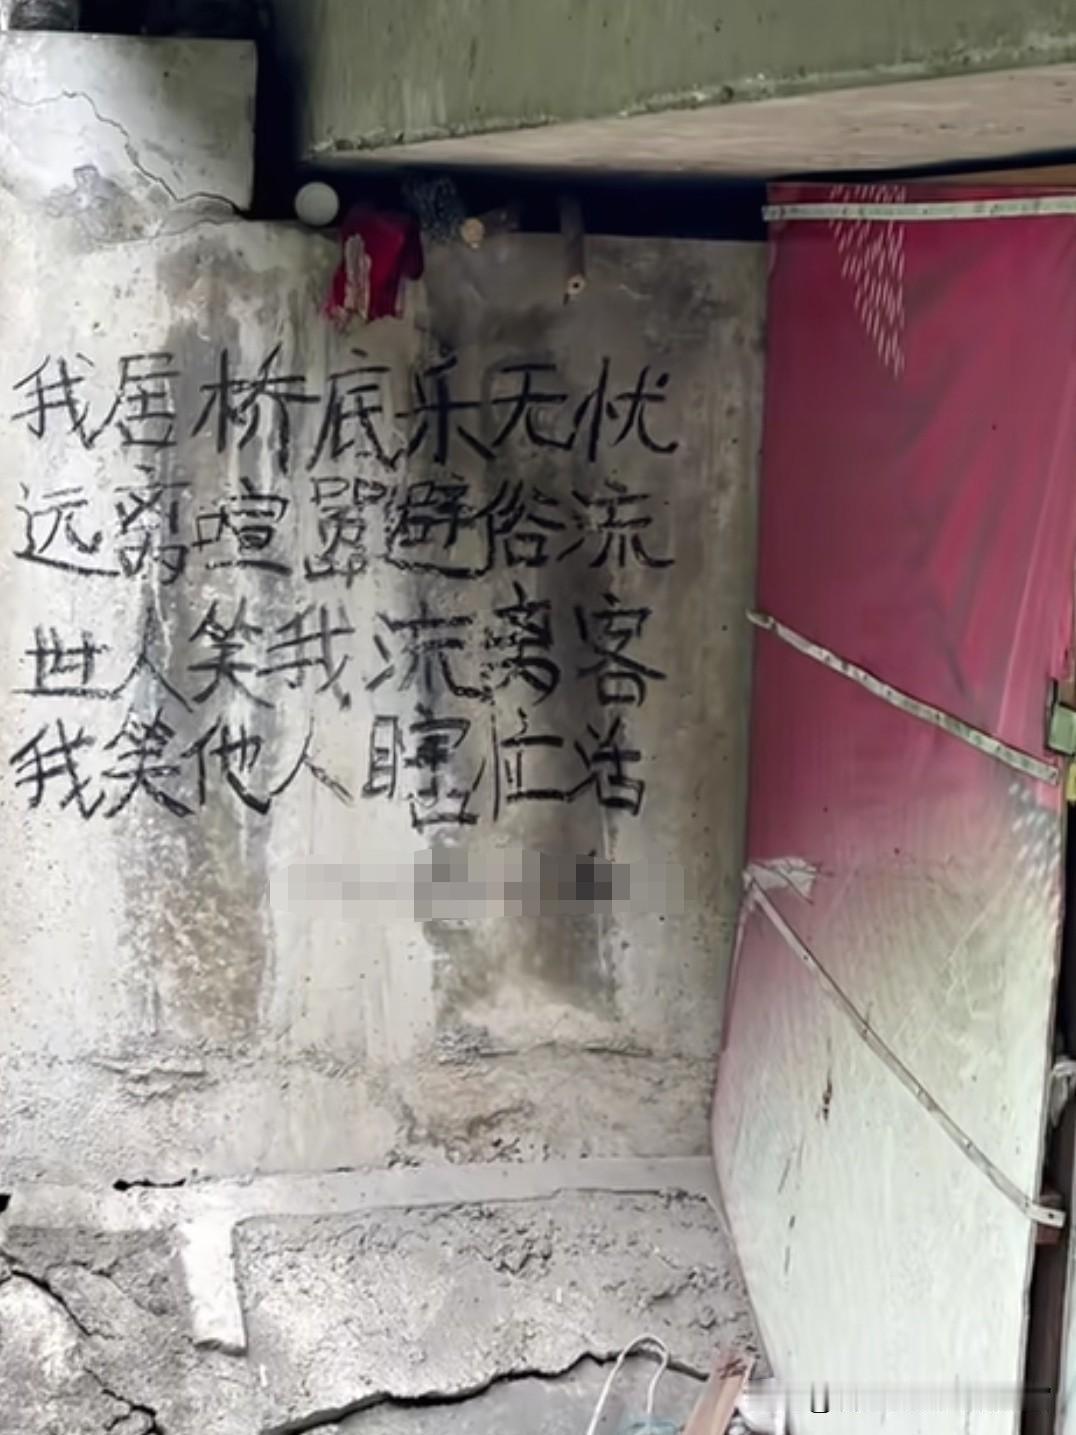 我居桥底乐无忧
远离喧嚣避俗流
世人笑我流离客
我笑他人瞎忙活